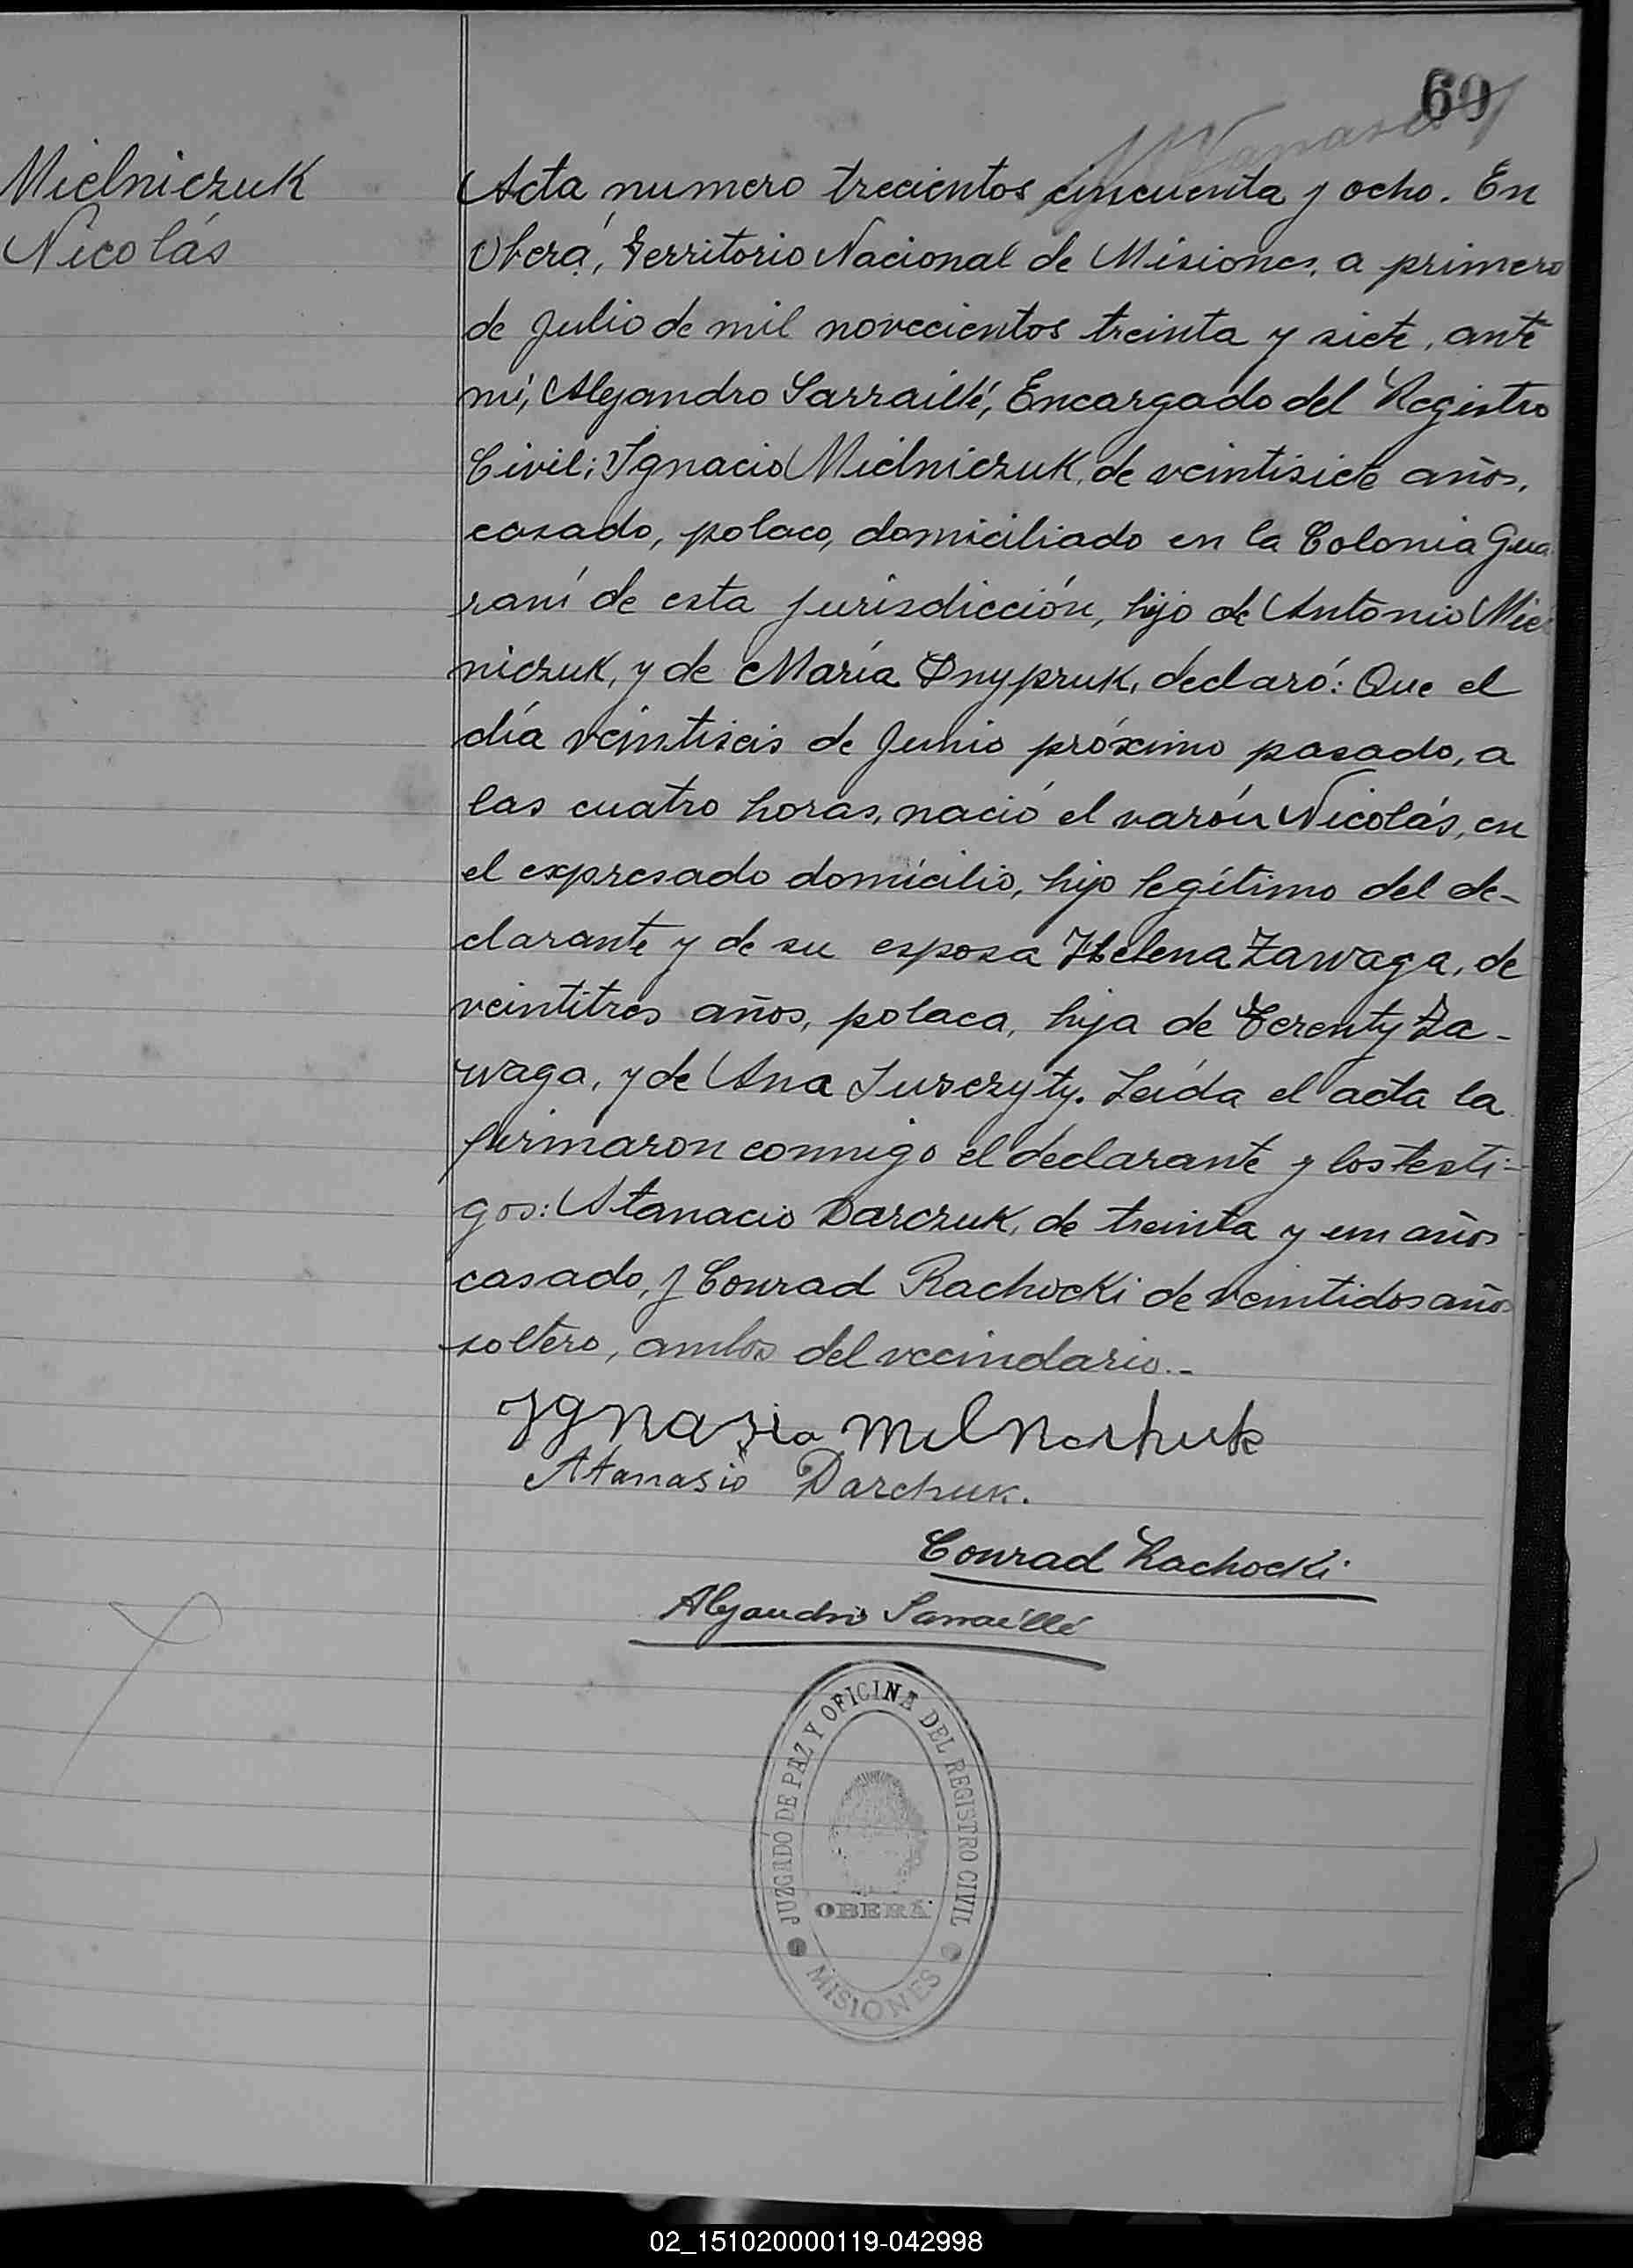 60
Mielniczuk
Nicolás
Acta numero trecientos cincuenta y ocho. En
Oberá, Territorio Nacional de Misiones, a primero
de Julio de mil novecientos treinta y siete, ante
mí, Alejandro Sarraillé, Encargado del Registro
Civil; Ignacio Mielniczuk, de veintisiete años,
casado, polaco, domiciliado en la Colonia Gua
raní de esta jurisdicción, hijo de Antonio Miel
niczuk, y de María Dnypruk, declaró: Que el
día veintiseis de Junio próximo pasado, a
las cuatro horas, nació el varón Nicolás, en
el expresado domicilio, hijo legítimo del de-
clarante y de su esposa Helena Zawaga, de
veintitres años, polaca, hija de Terenty Za-
waga, y de Ana Jurczyty. Leída el acta la
firmaron conmigo el declarante y los testi-
gos: Atanacio Darczuk, de treinta y un años
casado, y Conrad Rachocki de veintidos años
soltero, ambos del vecindario.-
Ignazio Melnichuk
Atanasio Darchuk.
Conrad Rachocki
Alejandro Sarraillé
JUZGADO DE PAZ Y OFICINA DEL REGISTRO CIVIL
OBERÁ
MISIONES
02_151020000119-042998